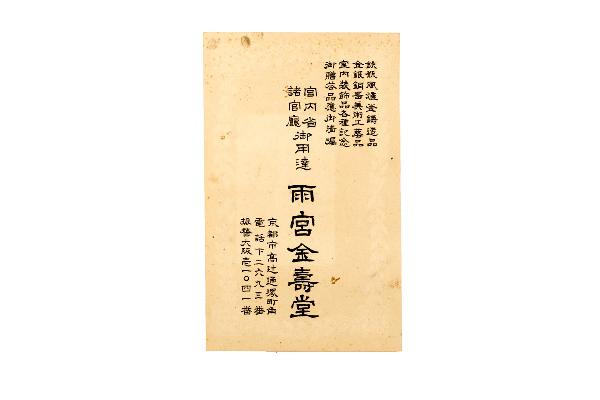 鉄瓶風爐釜鋳造品
金銀銅器美術工藝品
室内装飾品各種記念
御贈答品應御満編
宮内省
諸官廳
御用達
雨宮金壽堂
京都市高辻通堺町角
電話下二六九三番
振替大阪壱一〇四一番